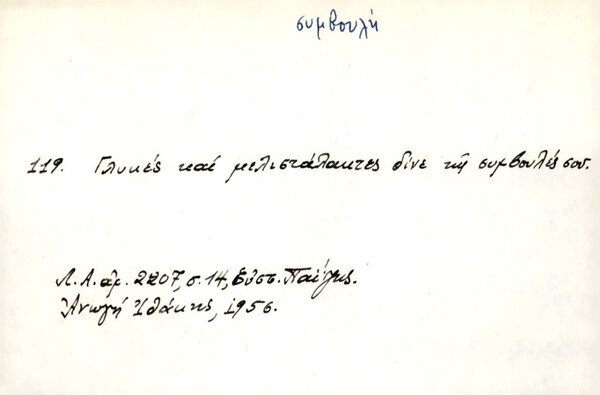 συμβουλή
119. Γλυκές καί μελιστάλακτες δίνε τίς συμβουλές σου.
Λ.Α. ἀρ. 2207, σ. 14, Εὐσσ.
Ἀνωγή Ἰθάκης, 1956.